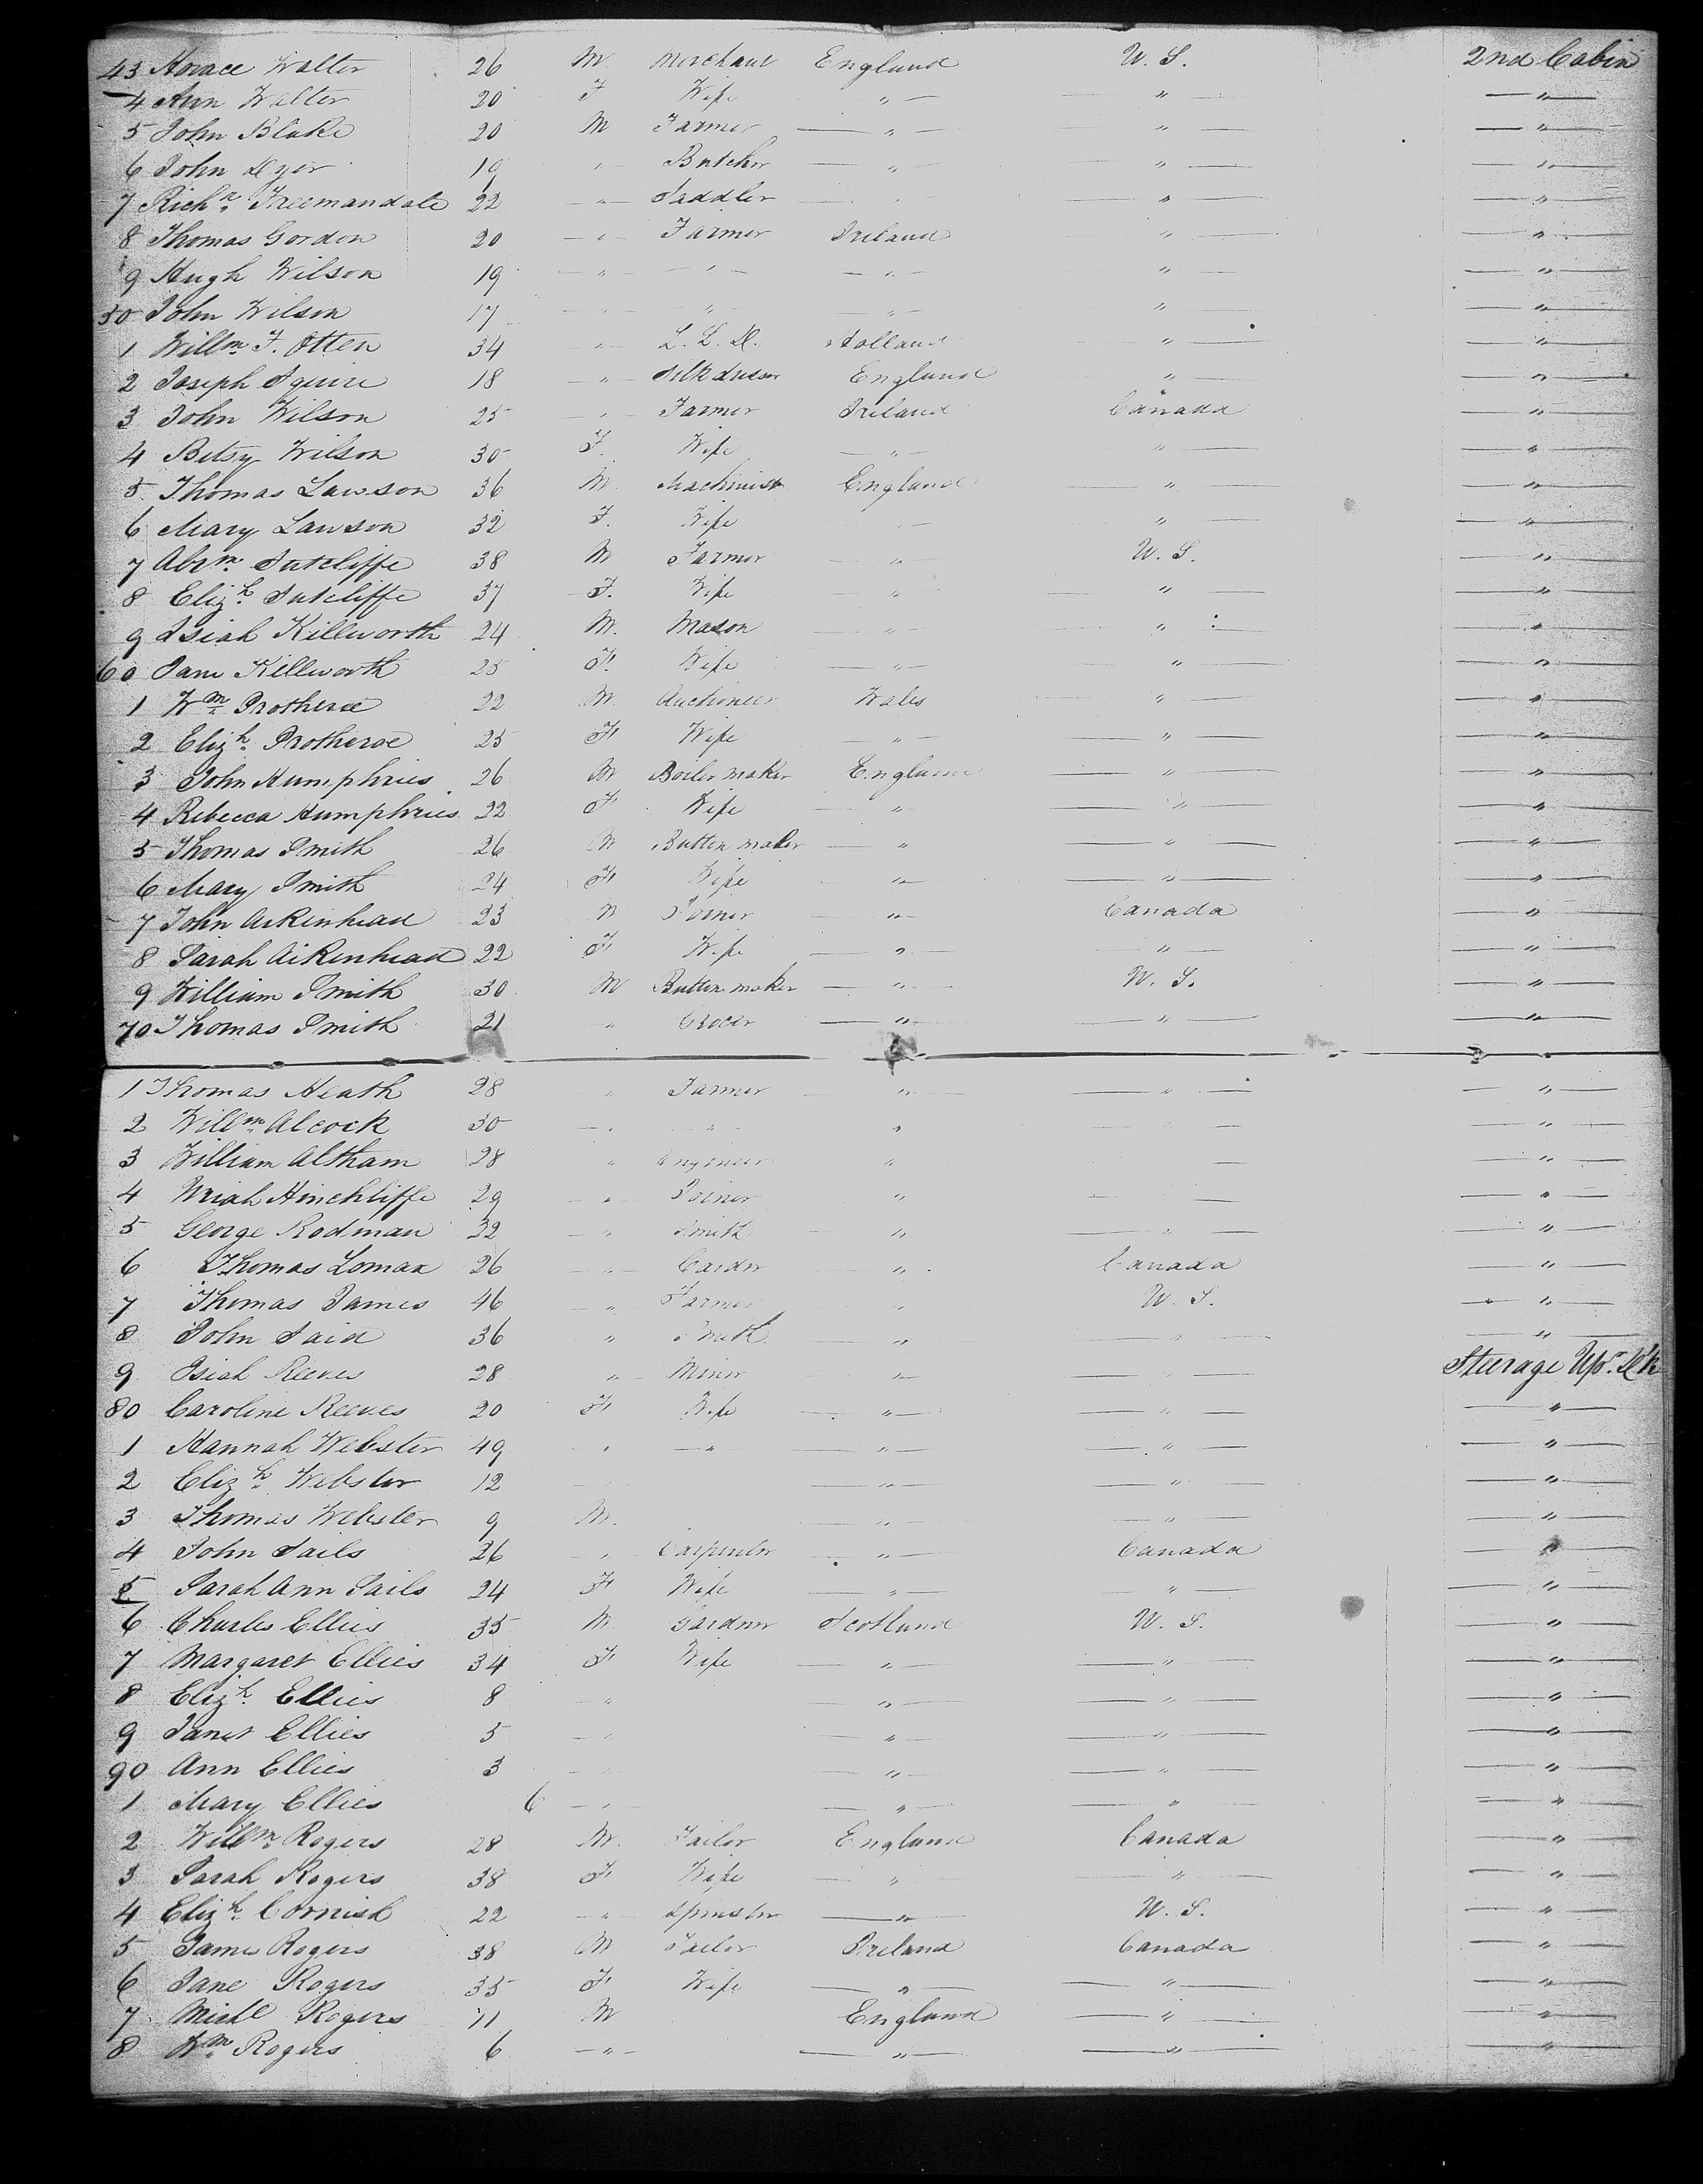 43 Horace Walter 26 M. Merchant England U. S. 2nd Cabin
4 Ann Walter 20 F Wife " " "
5 John Blake 20 M Farmer " " "
6 John Dyer 19 " Butcher " " "
7 Richd. Freemandale 22 " Saddler " " "
8 Thomas Gordon 20 " Farmer Ireland " "
9 Hugh Wilson 19 " " " " "
50 John Wilson 17 " " " " "
1 Willm. F. Otten 34 " L. L. D. Holland " "
2 Joseph Squire 18 " Silk dresser England " "
3 John Wilson 25 " Farmer Ireland Canada "
4 Betsy Wilson 30 F. Wife " " "
5 Thomas Lawson 36 M. Machinist England " "
6 Mary Lawson 32 F. Wife " " "
7 Abrm. Sutcliffe 38 M Farmer " U. S. "
8 Elizh. Sutcliffe 37 F. Wife " " "
9 Isiah Killworth 24 M. Mason " " "
60 Jane Killworth 25 F. Wife " " "
1 Wm. Protheroe 22 M. Auctioneer Wales " "
2 Elizh. Protheroe 25 F Wife " " "
3 John Humphries 26 M Boiler maker England " "
4 Rebecca Humphries 22 F Wife " " "
5 Thomas Smith 26 M Button maker " " "
6 Mary Smith 24 F Wife " " "
7 John Aikenhead 23 M Joiner " Canada "
8 Sarah Aikenhead 22 F Wife " " "
9 William Smith 30 M Button maker " U. S. "
70 Thomas Smith 21 " Grocer " " "
1 Thomas Heath 28 " Farmer " " "
2 Willm. Alcock 30 " " " " "
3 William Altham 28 " Engineer " "
4 Uriah Hinchliffe 29 " Joiner " "
5 George Rodman 32 " Smith " " "
6 Thomas Lomax 26 " Carder " Canada "
7 Thomas James 46 " Farmer " U. S. "
8 John Said 36 " Smith " " "
9 Isiah Reeves 28 " Miner " " Steerage Upr. Dk
80 Caroline Reeves 20 F Wife " " "
1 Hannah Webster 49 " " " " "
2 Elizh. Webster 12 " " "
3 Thomas Webster 9 M. " " "
4 John Sails 26 " Carpenter " Canada "
5 Sarah Ann Sails 24 F Wife " " "
6 Charles Ellies 35 M Gardner Scotland U. S. "
7 Margaret Ellies 34 F Wife " " "
8 Elizh. Ellies 8 " " " "
9 Janet Ellies 5 " " " "
90 Ann Ellies 3 " " " "
1 Mary Ellies 6 " " " "
2 Willm. Rogers 28 M. Tailor England Canada "
3 Sarah Rogers 38 F Wife " " "
4 Elizh. Cornish 22 " Spinster " U. S. "
5 James Rogers 38 M Tailor Ireland Canada "
6 Jane Rogers 35 F Wife " " "
7 Michl Rogers 11 M England " "
8 Wm. Rogers 6 " " " "